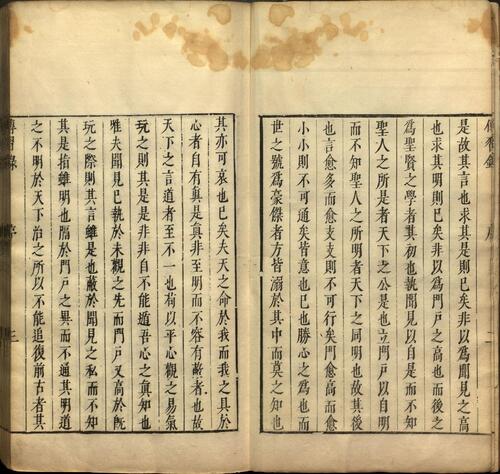 是故其言也求其是則已矣非以爲聞見之高
也求其明則已矣非以爲門戶之高也而後之
爲聖賢之學者其初也執聞見以自是而不知
聖人之所是者天下之公是也立門戶以自明
而不知聖人之所明者天下之同明也故其後
也言愈多而愈支支則不可行矣門愈高而愈
小小則不可通矣皆意也已也勝心之爲也而
世之號爲豪傑者方皆溺於其中而莫之知也
其亦可哀也已矣夫天之命於我而我之具於
心者自有眞是眞非至明而不容有蔽者也故
天下之言道者至不一也苟以平心觀之易氣
玩之則其是是非非自不能遁吾心之眞知也
雅夫聞見已執於未觀之先而門戶又高於旣
玩之際則其言雖是也蔽於聞見之私而不知
其是指雖明也隔於門戶之異而不通其明道
之不明於天下治之所以不能追復前古者其
傳習錄
序
三